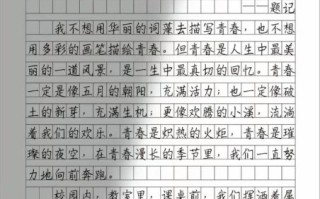 ——题记
我不想用华丽的词藻去描写青春，也不想
用多彩的画笔描绘青春。但青春是人生中最美
丽的一道风景，是一生中最真切的回忆。青春
一定是像五月的朝阳，充满活力；也一定像破
土的新芽，充满生机；更像欢腾的小溪，流淌
着我们的欢乐。青春是炽热的火炬，青春是璀
璨的夜空，在青春漫长的季节里，我们一直努
力地向前奔跑。
校园内，教室里，课桌前，我们挥洒着属